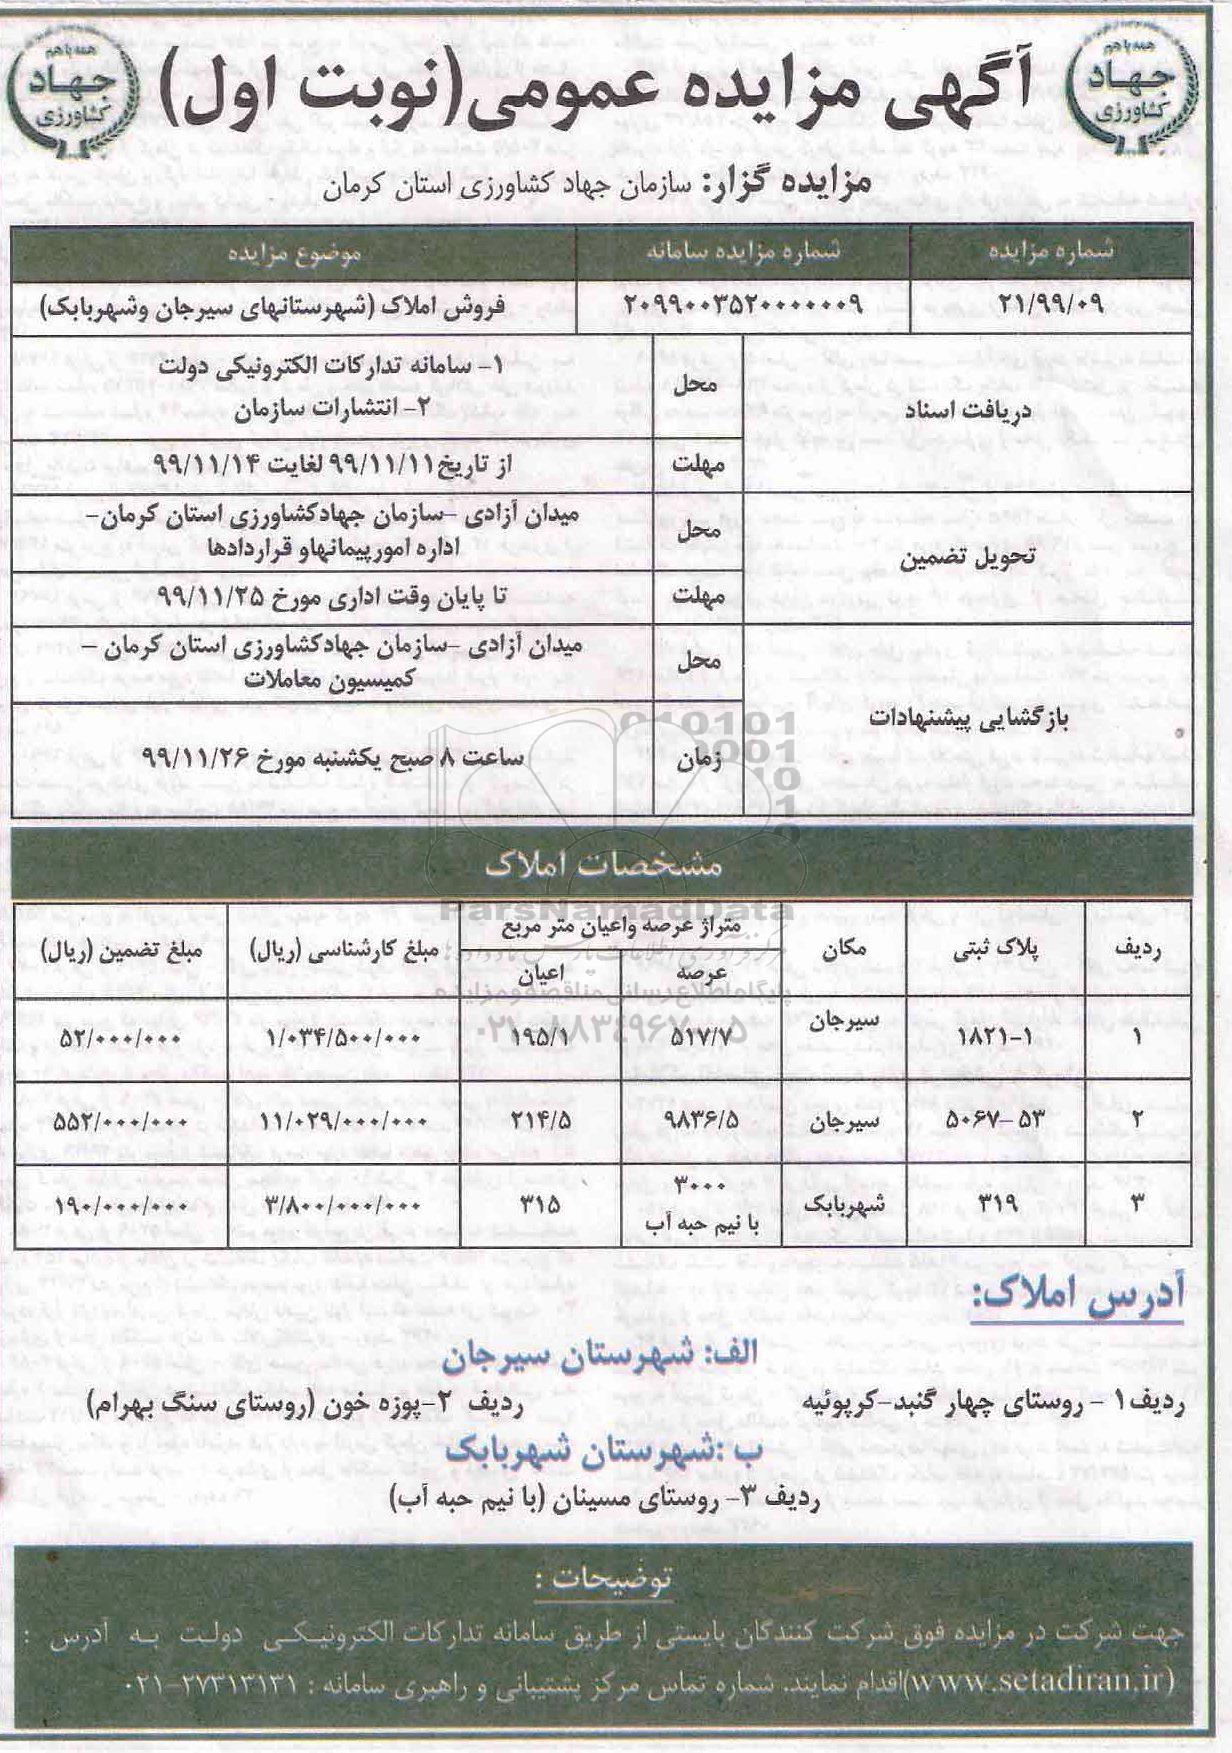 همه با هم
جهاد
کشاورزی
آگهی مزایده عمومی(نوبت اول)
همه با هم
جهاد
کشاورزی
مزایده گزار: سازمان جهاد کشاورزی استان کرمان
شماره مزایده شماره مزایده سامانه موضوع مزایده
۲۱/۹۹/۰۹ ۲۰۹۹۰۰۳۵۲۰۰۰۰۰۰۹ فروش املاک (شهرستانهای سیرجان وشهربابک)
دریافت اسناد
محل
۱- سامانه تدارکات الکترونیکی دولت
۲- انتشارات سازمان
مهلت از تاریخ۹۹/۱۱/۱۱ لغایت ۹۹/۱۱/۱۴
تحویل تضمین
محل
میدان آزادی -سازمان جهادکشاورزی استان کرمان-
اداره امورپیمانهاو قراردادها
مهلت تا پایان وقت اداری مورخ ۹۹/۱۱/۲۵
بازگشایی پیشنهادات
محل
میدان آزادی -سازمان جهادکشاورزی استان کرمان -
کمیسیون معاملات
زمان ساعت ۸ صبح یکشنبه مورخ ۹۹/۱۱/۲۶
010101
0001
10
1
مشخصات املاک
ParsNamadData
ردیف پلاک ثبتی مکان متراژ عرصه واعیان متر مربع مبلغ کارشناسی (ریال) مبلغ تضمین (ریال)
عرصه اعیان
پایگاه اطلاع رسانی مناقصه و مزایده
۰۲۱-۸۸۳۴۹۶۷۰-۵
۱ ۱۸۲۱-۱ سیرجان ۵۱۷/۷ ۱۹۵/۱ ۱/۰۳۴/۵۰۰/۰۰۰ ۵۲/۰۰۰/۰۰۰
۲ ۵۰۶۷-۵۳ سیرجان ۹۸۳۶/۵ ۲۱۴/۵ ۱۱/۰۲۹/۰۰۰/۰۰۰ ۵۵۲/۰۰۰/۰۰۰
۳ ۳۱۹ شهربابک ۳۰۰۰ با نیم حبه آب ۳۱۵ ۳/۸۰۰/۰۰۰/۰۰۰ ۱۹۰/۰۰۰/۰۰۰
آدرس املاک:
الف: شهرستان سیرجان
ردیف۱ - روستای چهار گنبد-کرپوئیه ردیف ۲-پوزه خون (روستای سنگ بهرام)
ب :شهرستان شهربابک
ردیف ۳- روستای مسینان (با نیم حبه آب)
توضیحات :
جهت شرکت در مزایده فوق شرکت کنندگان بایستی از طریق سامانه تدارکات الکترونیکی دولت به آدرس :
(www.setadiran.ir)اقدام نمایند. شماره تماس مرکز پشتیبانی و راهبری سامانه : ۲۷۳۱۳۱۳۱-۰۲۱